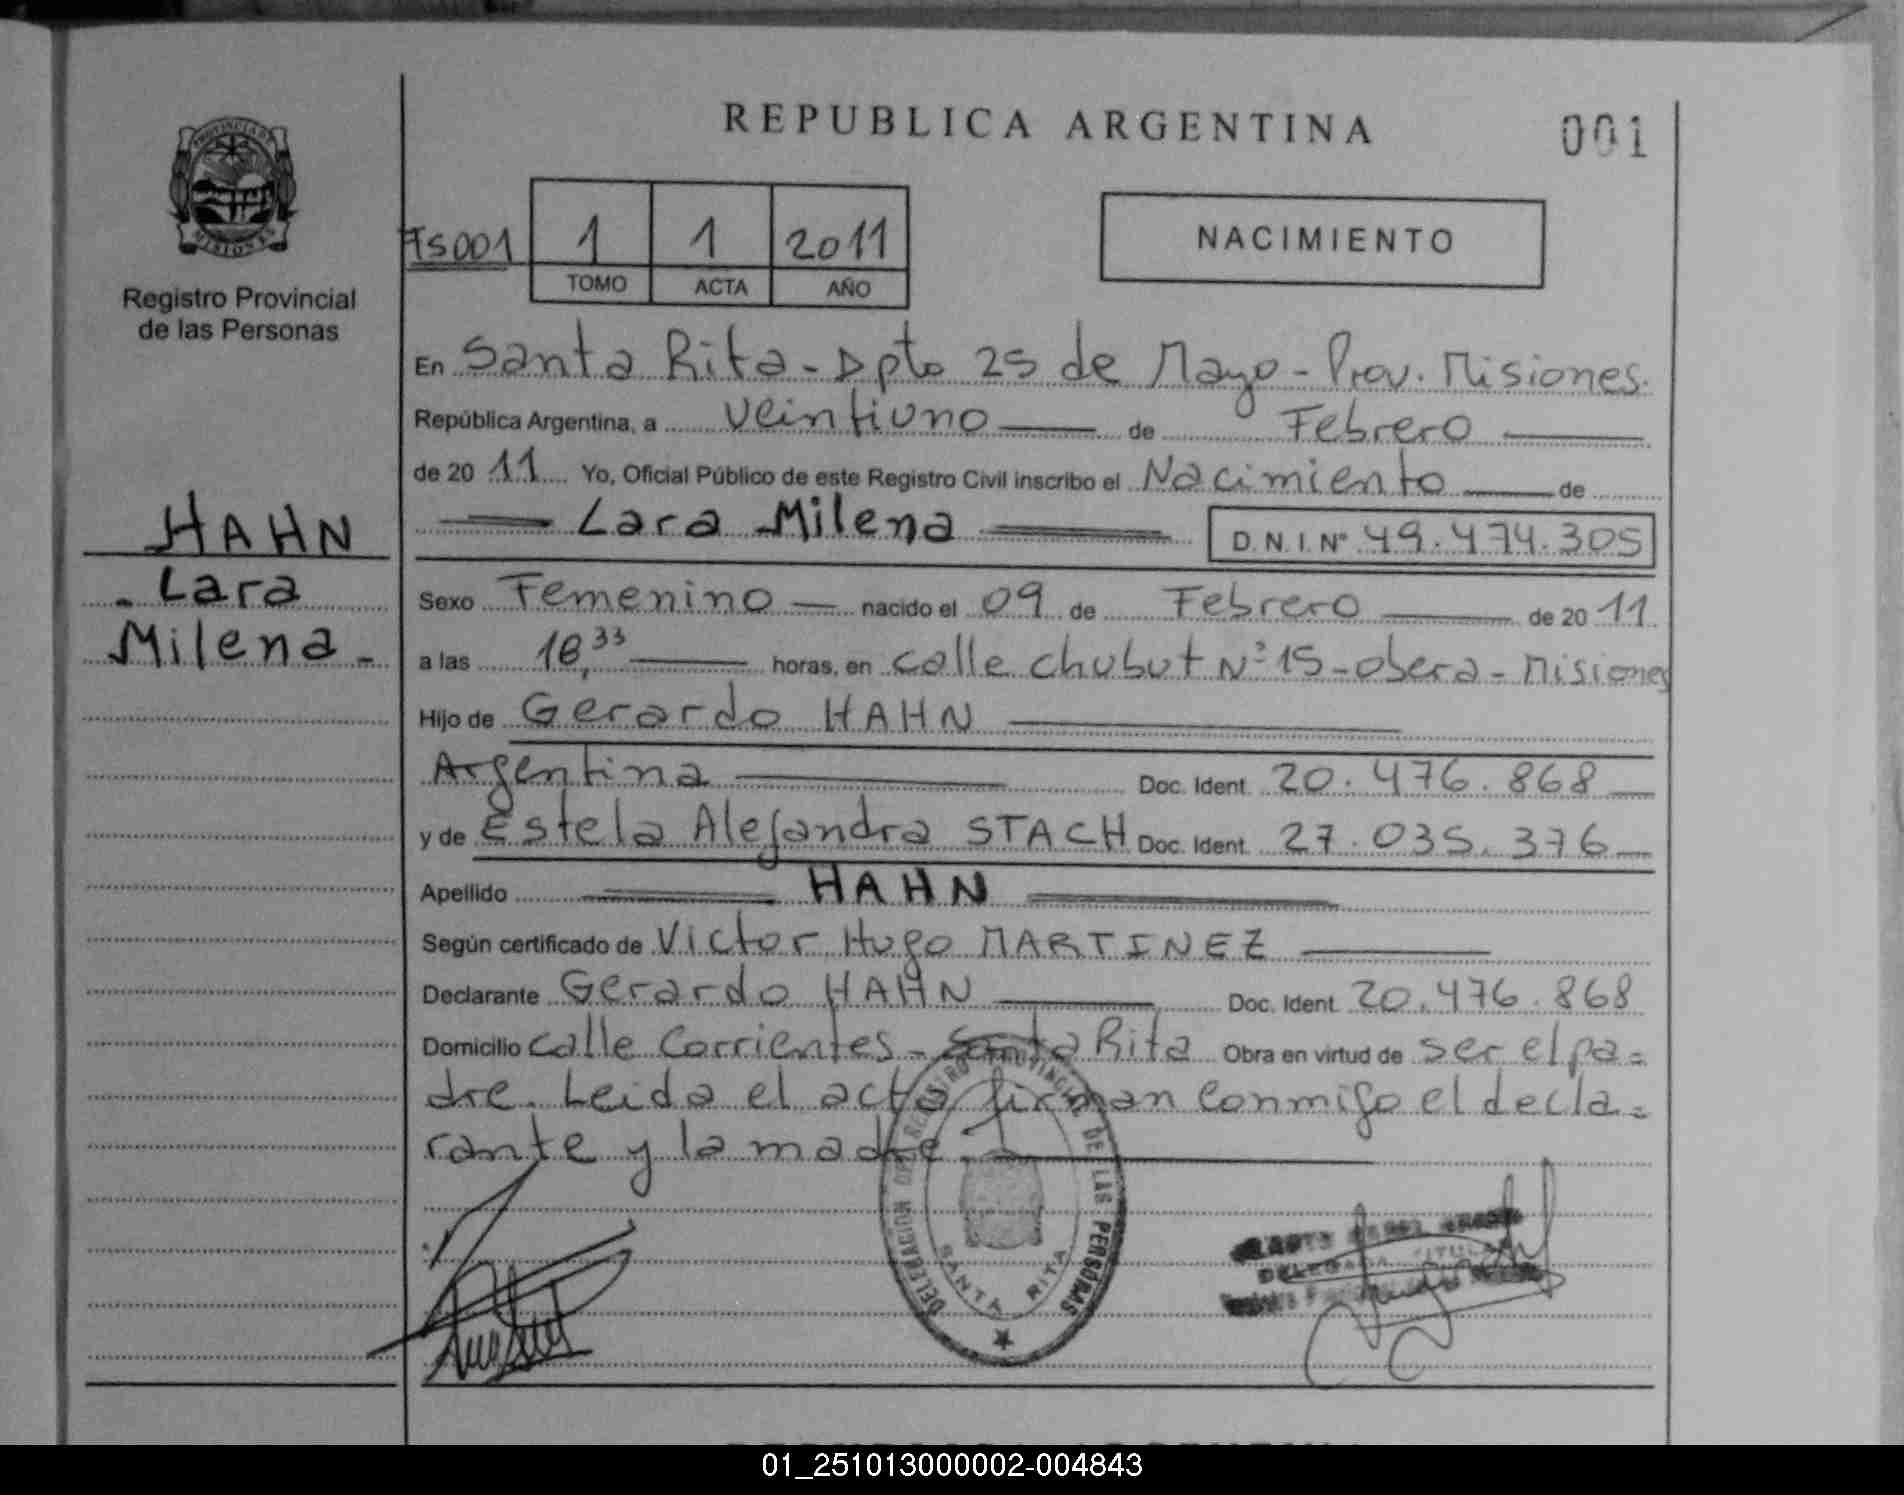 REPUBLICA ARGENTINA
001
PROVINCIA DE MISIONES
Registro Provincial
de las Personas
TS001
1 1 2011
TOMO ACTA AÑO
NACIMIENTO
En Santa Rita - Dpto 25 de Mayo - Prov. Misiones.
República Argentina, a veintiuno de Febrero
de 20 11 Yo, Oficial Público de este Registro Civil inscribo el Nacimiento de
Lara Milena D.N.I. Nº 49.474.305
HAHN
Lara
Milena
Sexo Femenino nacido el 09 de Febrero de 20 11
a las 18,33 horas, en calle chubut Nº 15 - obera - Misiones
Hijo de Gerardo HAHN
Argentina Doc. Ident. 20.476.868
y de Estela Alejandra STACH Doc. Ident. 27.035.376
Apellido HAHN
Según certificado de Victor Hugo MARTINEZ
Declarante Gerardo HAHN Doc. Ident. 20.476.868
Domicilio calle Corrientes - Santa Rita Obra en virtud de ser el pa=
dre. Leida el acta firman conmigo el decla=
rante y la madre.
DELEGACION DEL REGISTRO PROVINCIAL DE LAS PERSONAS
SANTA RITA
DELEGADA TITULAR
01_251013000002-004843